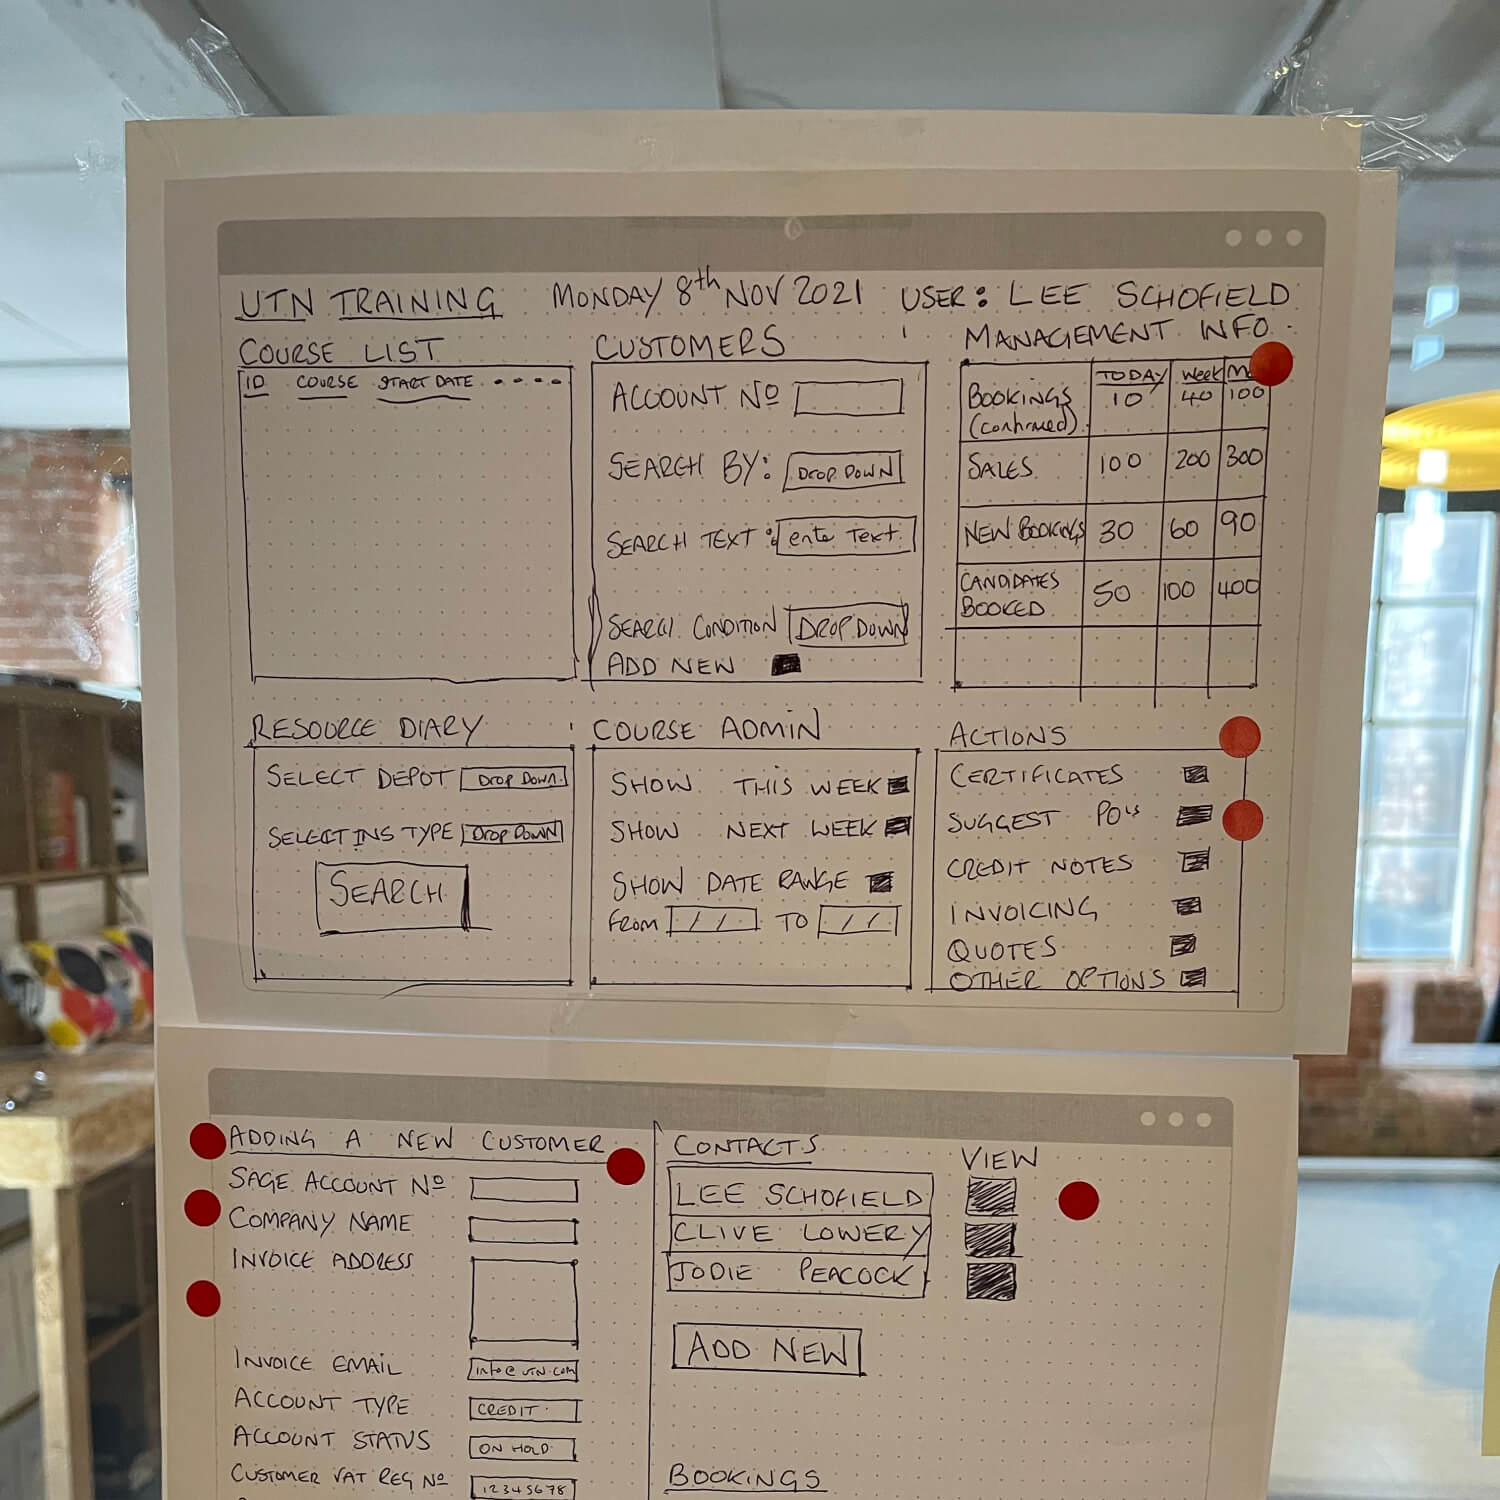 UTN TRAINING MONDAY 8th NOV 2021 USER: LEE SCHOFIELD
COURSE LIST
ID COURSE START DATE
CUSTOMERS
ACCOUNT No
SEARCH BY: DROP DOWN
SEARCH TEXT: enter Text
SEARCH CONDITION DROP DOWN
ADD NEW
MANAGEMENT INFO
TODAY Week
BOOKINGS 10 40 100
(confirmed)
SALES 100 200 300
NEW BOOKINGS 30 60 90
CANDIDATES
BOOKED 50 100 400
RESOURCE DIARY
SELECT DEPOT DROP DOWN
SELECT INS TYPE DROP DOWN
SEARCH
COURSE ADMIN
SHOW THIS WEEK
SHOW NEXT WEEK
SHOW DATE RANGE
FROM / / TO / /
ACTIONS
CERTIFICATES
SUGGEST PO's
CREDIT NOTES
INVOICING
QUOTES
OTHER OPTIONS
ADDING A NEW CUSTOMER
SAGE ACCOUNT No
COMPANY NAME
INVOICE ADDRESS
INVOICE EMAIL info@utn.com
ACCOUNT TYPE CREDIT
ACCOUNT STATUS ON HOLD
CUSTOMER VAT REG No 12345678
CONTACTS
VIEW
LEE SCHOFIELD
CLIVE LOWERY
JODIE PEACOCK
ADD NEW
BOOKINGS